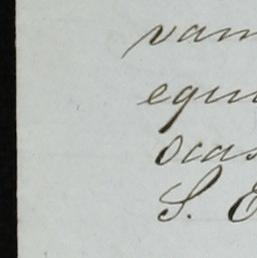 vam
equi
ocas
S. E